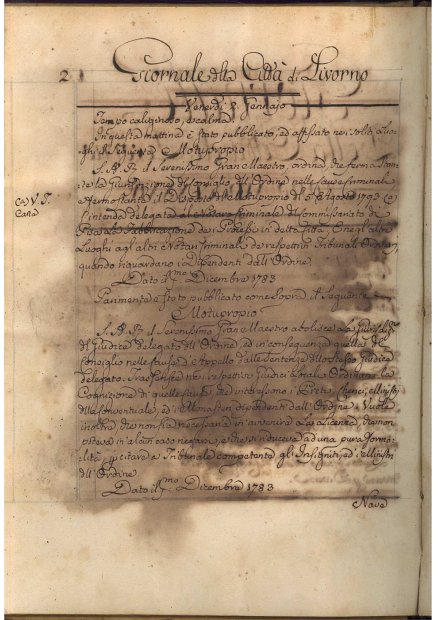 2 Giornale della Città di Livorno
Venerdì 2. Gennajo
Tempo caliginoso, e calma.
In questa mattina è stato pubblicato, ed affissato nei soliti Luo-
ghi il seguente Motuproprio
S. A. R. il Serenissimo Gran Maestro, ordina che ferma stan-
te la Giurisdizione del Consiglio dell'Ordine nelle Cause Criminali
e ferma stante il Disposto del Motuproprio de' 5. Agosto
s'intenda delegata al Notaro Criminale del Commissariato di
Pisa la Fabbricazione dei Processi in detta Città, e negli altri
Luoghi agl'altri Notari Criminali dei respettivi Tribunali
quando riguardano i Dipendenti dall'Ordine.
Dato il pmo Dicembre 1783
Parimente è stato pubblicato come sopra il seguente
Motuproprio
S. A. R. il Serenissimo Gran Maestro abolisce la
di Giudice delegato dell'Ordine, ed in conseguenza quella del
Consiglio nelle Cause d'Appello dalle Sentenze dello stesso Giudice
delegato. Trasferisce nei respettivi Giudici Locali Ordinari la
Cognizione di quelle Cause, che interessano i Preti,
della Conventuale, ed i Monasteri dipendenti dall'Ordine, e vuole
inoltre che non sia necessaria in avvenire la Licenza, che non
poteva in alcun caso negarsi, e che si riduceva ad una pura forma-
lità, per citare a Tribunale competente gl'Insigniti, ed i Ministri
dell'Ordine.
Dato il pmo Dicembre 1783
Nave